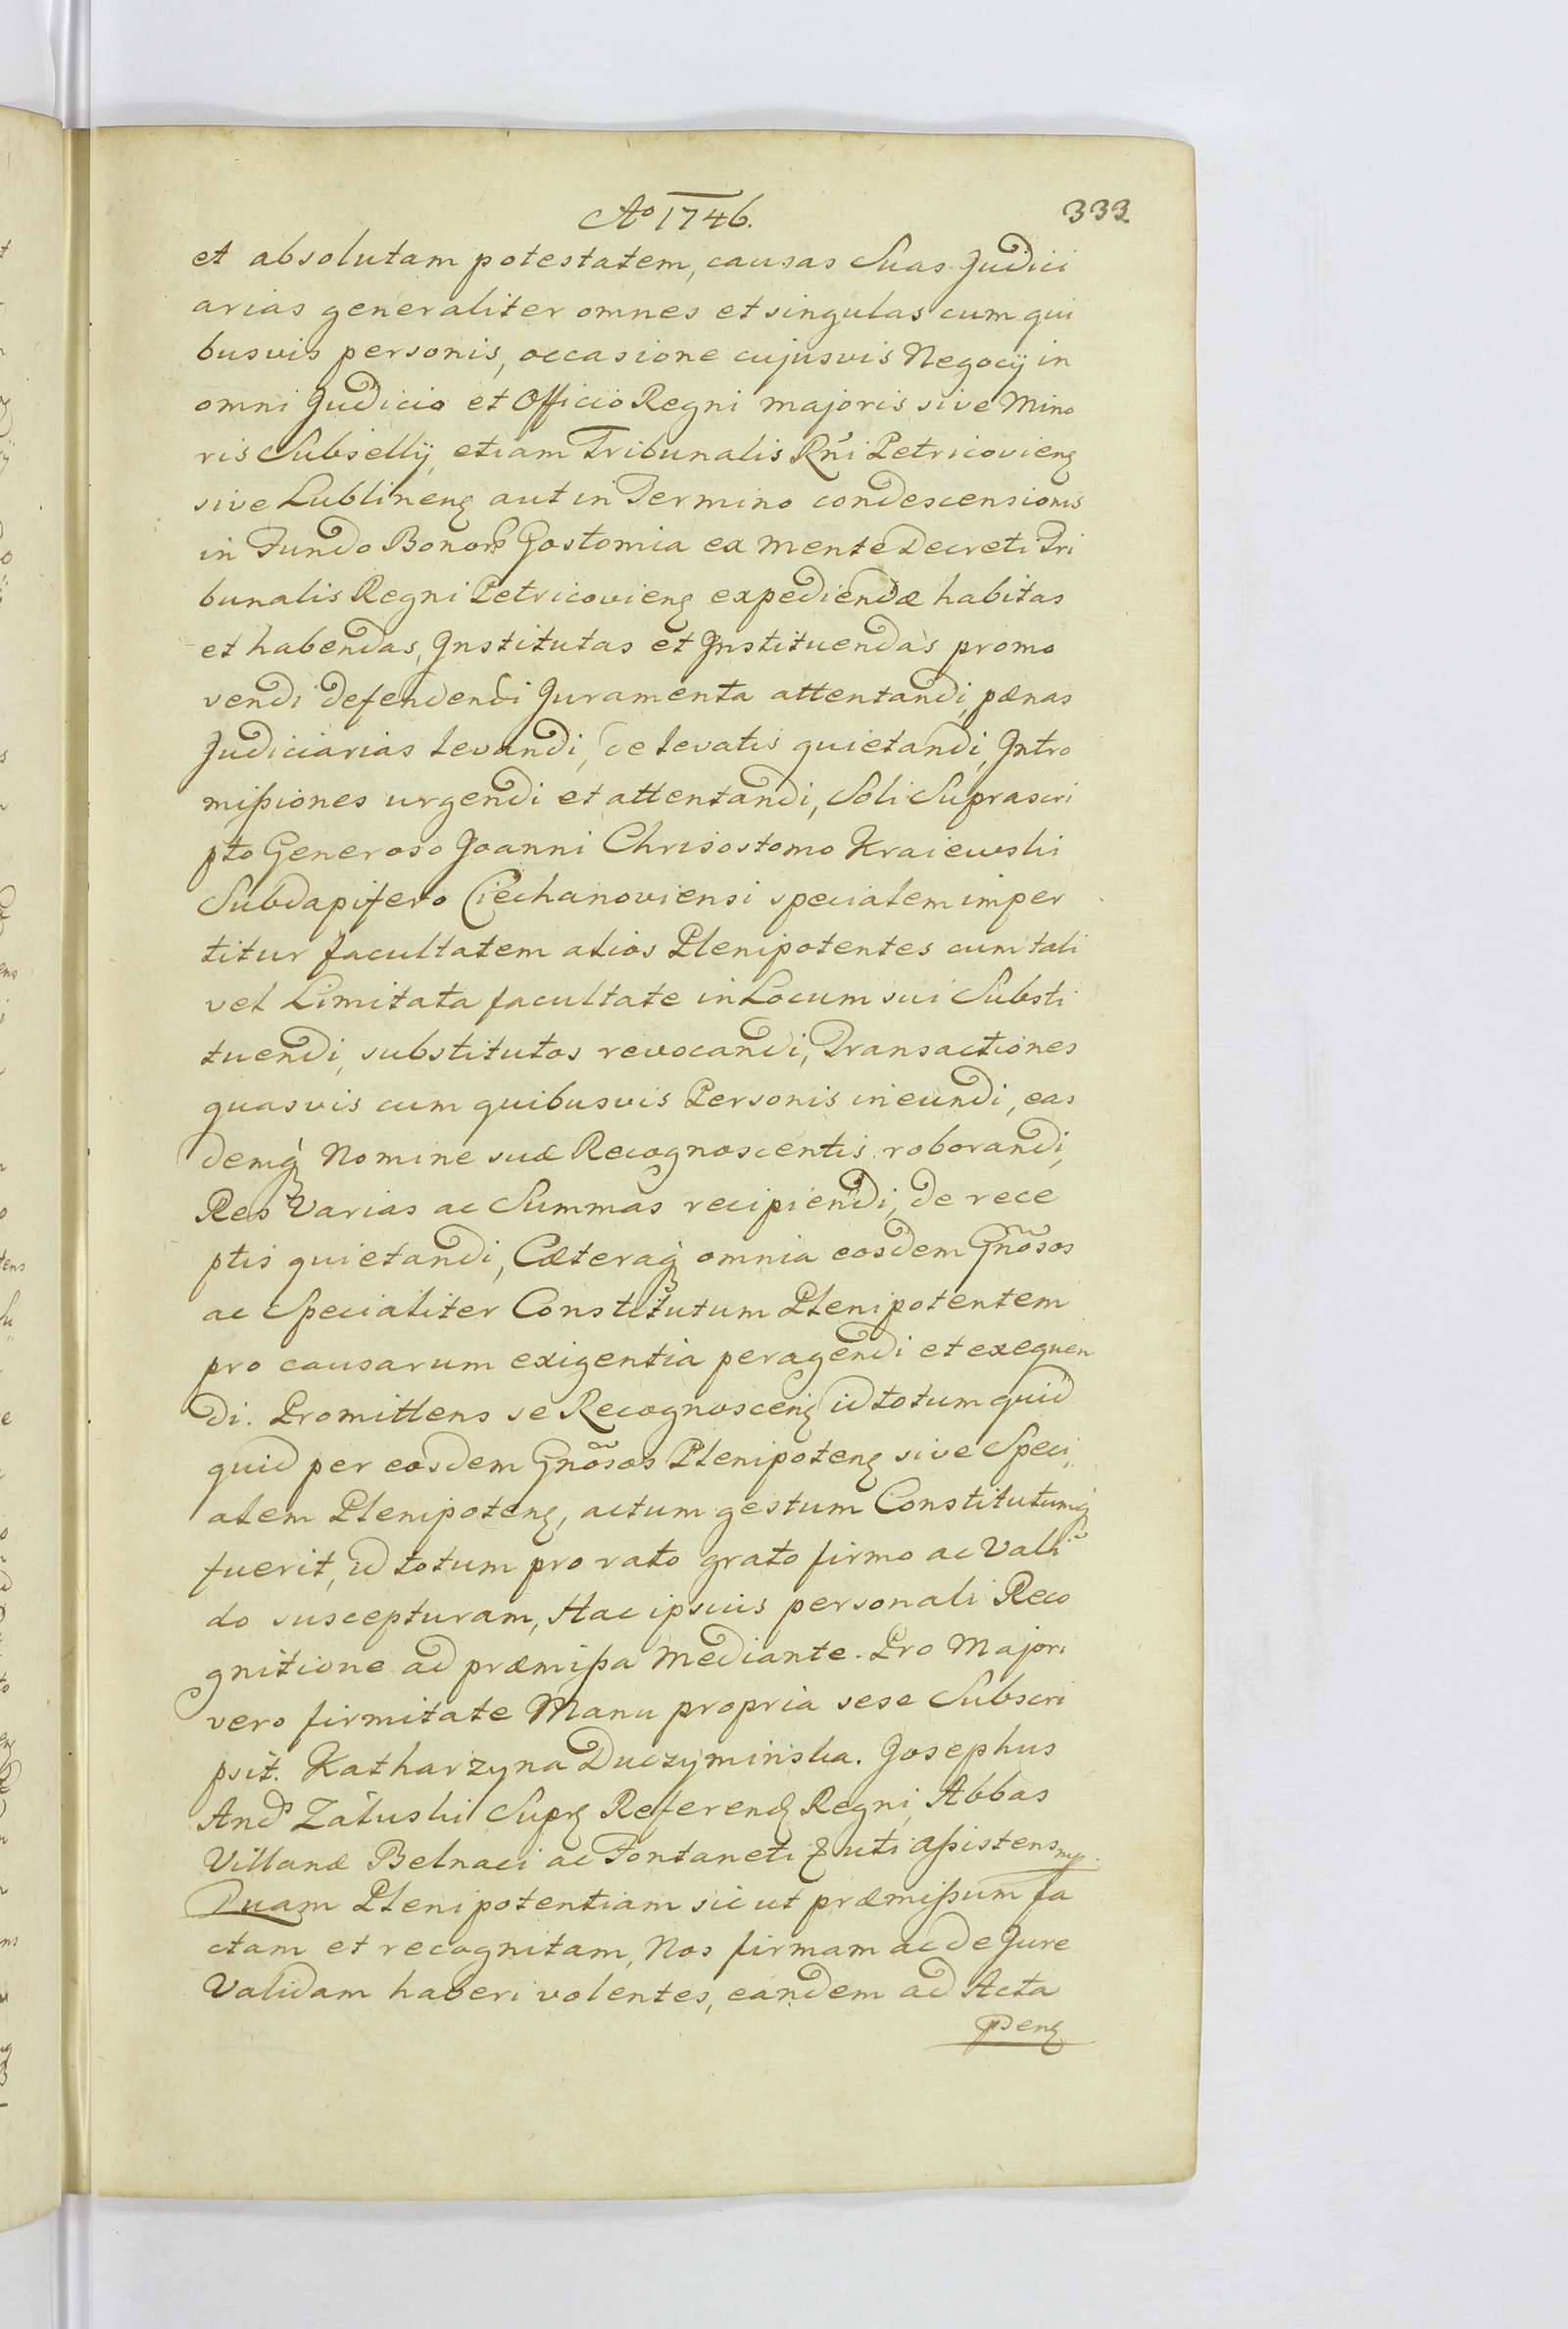 Ao 1746.
333
et absolutam potestatem, causas Suas Judici
arias generaliter omnes et singulas cum qui
busvis personis, occasione cujusvis Negocij in
omni Judicio et Officio Regni majoris sive Mino
ris Subsellij, etiam Tribunalis Rni Petricovien
sive Lublinen aut in Termino condescensionis
in Fundo Bonor Gostomia ex Mente Decreti Tri
bunalis Regni Petricovien expediendæ habitas
et habendas, Institutas et Instituendas promo
vendi defendendi Juramenta attentandi, pænas
Judiciarias levandi, de levatis quietandi, Intro
mißiones urgendi et attentandi, Soli Suprascri
pto Generoso Joanni Chrisostomo Kraiewski
Subdapifero Ciechanoviensi specialem imper
titur facultatem alios Plenipotentes cum tali
vel Limitata facultate in Locum sui Substi
tuendi, substitutos revocandi, Transactiones
quasvis cum quibusvis Personis ineundi, eas
demq Nomine suæ Recognoscentis roborandi,
Res Varias ac Summas recipiendi, de rece
ptis quietandi, Cæteraq omnia eosdem Gnosos
ac Specialiter Constitutum Plenipotentem
pro causarum exigentia peragendi et exequen
di. Promittens se Recognoscen id totum quid
quid per eosdem Gnosos Plenipoten sive Speci
alem Plenipoten, actum gestum Constitutumq
fuerit, id totum pro rato grato firmo ac Vali
do suscepturam, Hac ipsius personali Reco
gnitione ad præmißa Mediante. Pro Majori
vero firmitate Manu propria sese Subscri
psit. Katharzyna Duczymińska. Josephus
And Załuski Supr Referend Regni, Abbas
Villanæ Belnaci ac Fontaneti uti aßistens mp.
Quam Plenipotentiam sic ut præmißum fa
ctam et recognitam, Nos firmam ac de Jure
Validam haberi volentes, eandem ad Acta